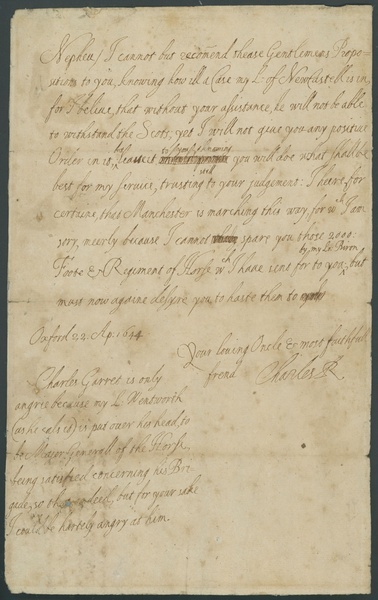 Nepheu/ I cannot but recomend thease Gentlemens Propo-
sition to you, knowing how ill a Case my Ld of Newcastell is in,
for I beliue, that without your assistance, he will not be able
to withstand the Scots; yet I will not giue you any positiue
Order in it, knowing you will doe what shall be
best for my seruice, trusting to your judgement: I heare for
certaine, that Manchester is marching this way for wch I am
sory, meerly because I cannot spare you those 2000:
by my Ld Biron
Foote & Regiment of Horse wch I haue sent for to you, but
must now againe desyre you to haste them to
Oxford 22 Ap: 1644
Your louing Oncle & most faithfull
frend Charles R
Charles Garret is only
angrie because my L Wentworth
(as he cals it) is put ouer his head, to
be Major Generall of the Horse,
being satisfied concerning his Bri-
gade, so but for your sake
I could be hartely angry at him.